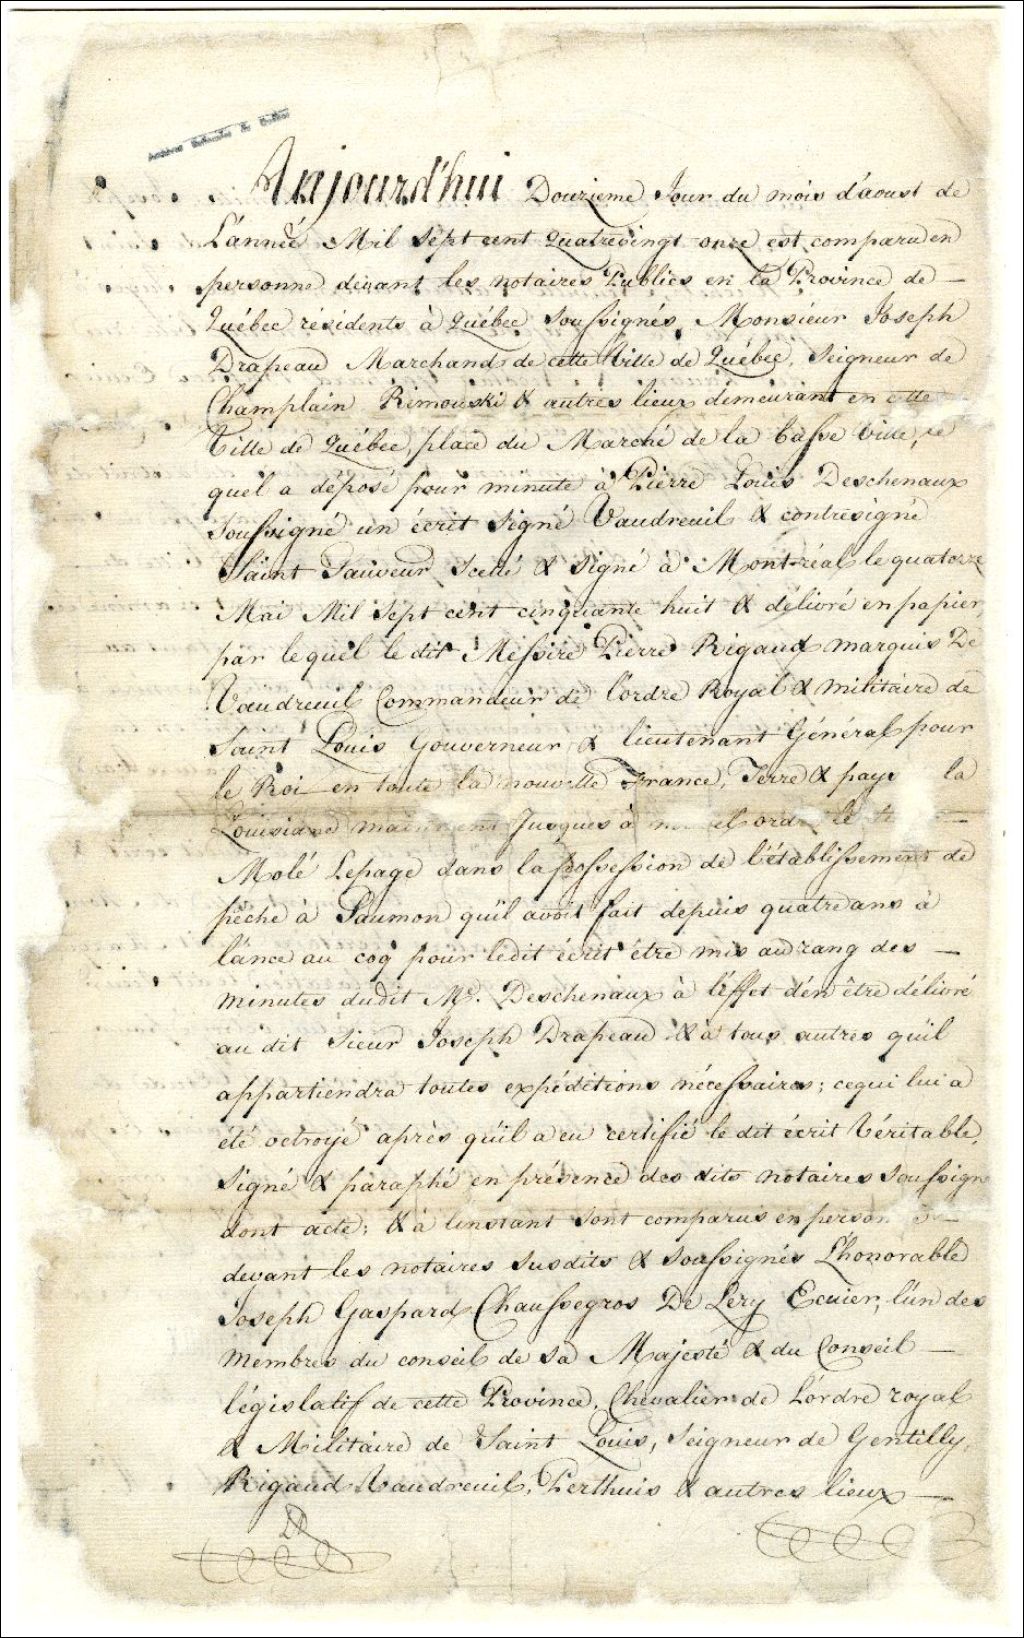 Aujourd'hui Douzieme Jour du mois d'aoust de
L'année Mil Sept cent Quatrevingt onze est comparu en
personne devant les notaires Publics en la Province de —
Québec résidents à Québec Soussignés, Monsieur Joseph
Drapeau Marchand de cette Ville de Québec, Seigneur de
Champlain Rimouski & autres lieux demeurant en cette
Ville de Québec, place du Marché de la basse Ville, le
quel a déposé pour minute à Pierre Louis Deschenaux
Soussigné un écrit Signé Vaudreuil & contresigné
Saint Sauveur Scellé & Signé à Mont-réal le quatorze
Mai Mil Sept cent cinquante huit & délivré en papier,
par lequel le dit Messire Pierre Rigaud marquis De
Vaudreuil Commandeur de l'ordre Royal & militaire de
Saint Louis Gouverneur & lieutenant Général pour
le Roi en toute la nouvelle France, Terre & pays la
Louisiane Jusques à ordre le
Molé Lepage dans la possession de l'établissement de
pêche à Saumon qu'il avoit fait depuis quatre ans à
l'ance au coq pour ledit écrit être mis au rang des —
minutes dudit Me. Deschenaux à l'éffet d'en être délivré
au dit Sieur Joseph Drapeau & à tous autres qu'il
appartiendra toutes expéditions nécessaires; cequi lui a
été octroyé après qu'il a eu certifié le dit écrit Véritable,
Signé & paraphé en présence des dits notaires Soussign
dont acte; & à l'instant Sont comparus en person —
devant les notaires Susdits & Soussignés L'honorable
Joseph Gaspard Chaussegros De Lery Ecuier, l'un des
Membres du conseil de Sa Majesté & du Conseil —
législatif de cette Province, Chevalier de L'ordre royal
& Militaire de Saint Louis, Seigneur de Gentilly,
Rigaud Vaudreuil, Perthuis & autres lieux —